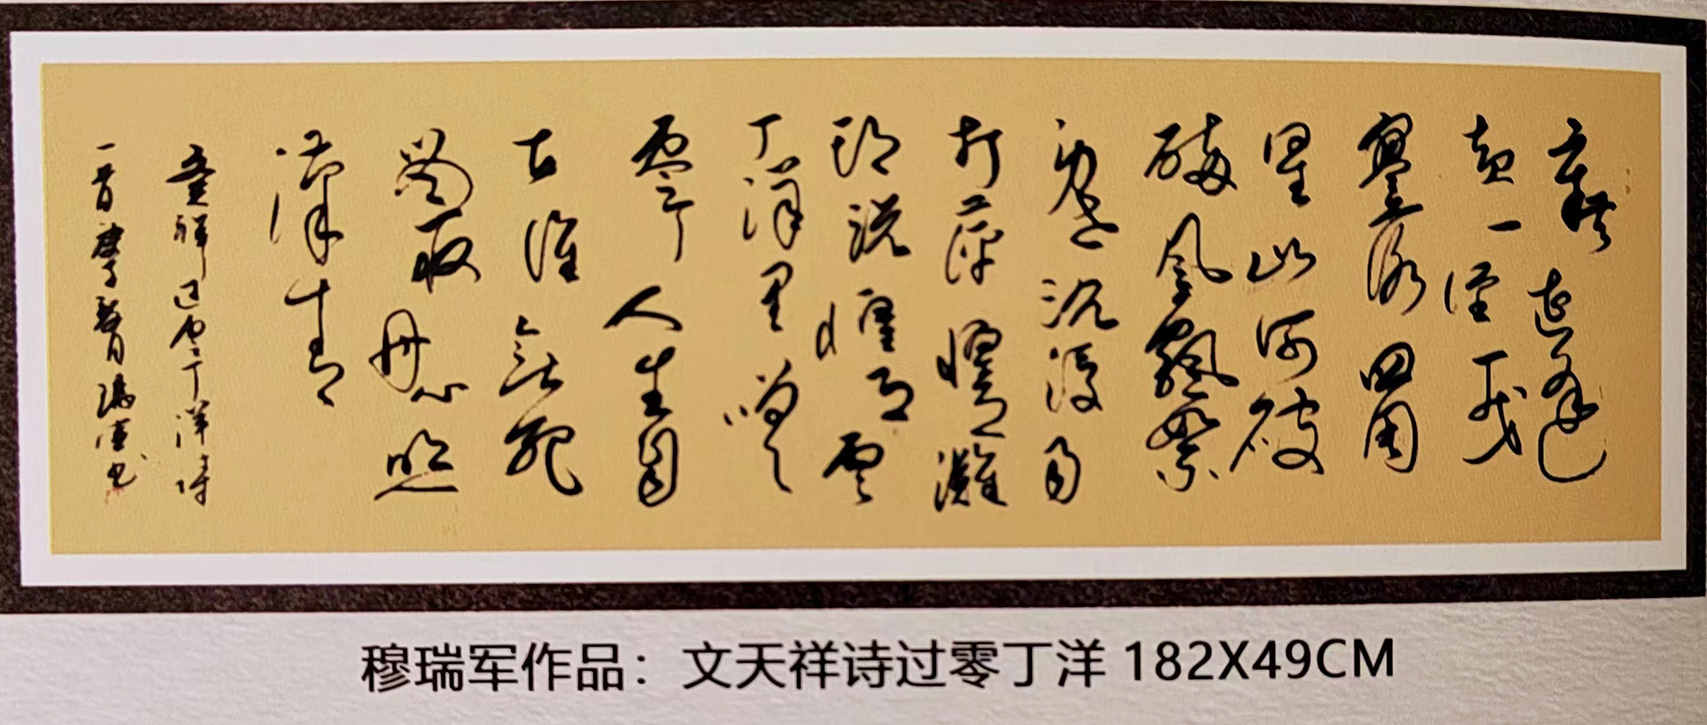 辛苦遭逢
起一经干戈
寥落四周
星山河破
碎風飄絮
身世沉浮雨
打萍惶恐灘
头说惶恐零
丁洋里嘆
零丁人生自
古誰無死
留取丹心照
汗青
过零丁洋诗
一首
穆瑞军作品：文天祥诗过零丁洋 182X49CM